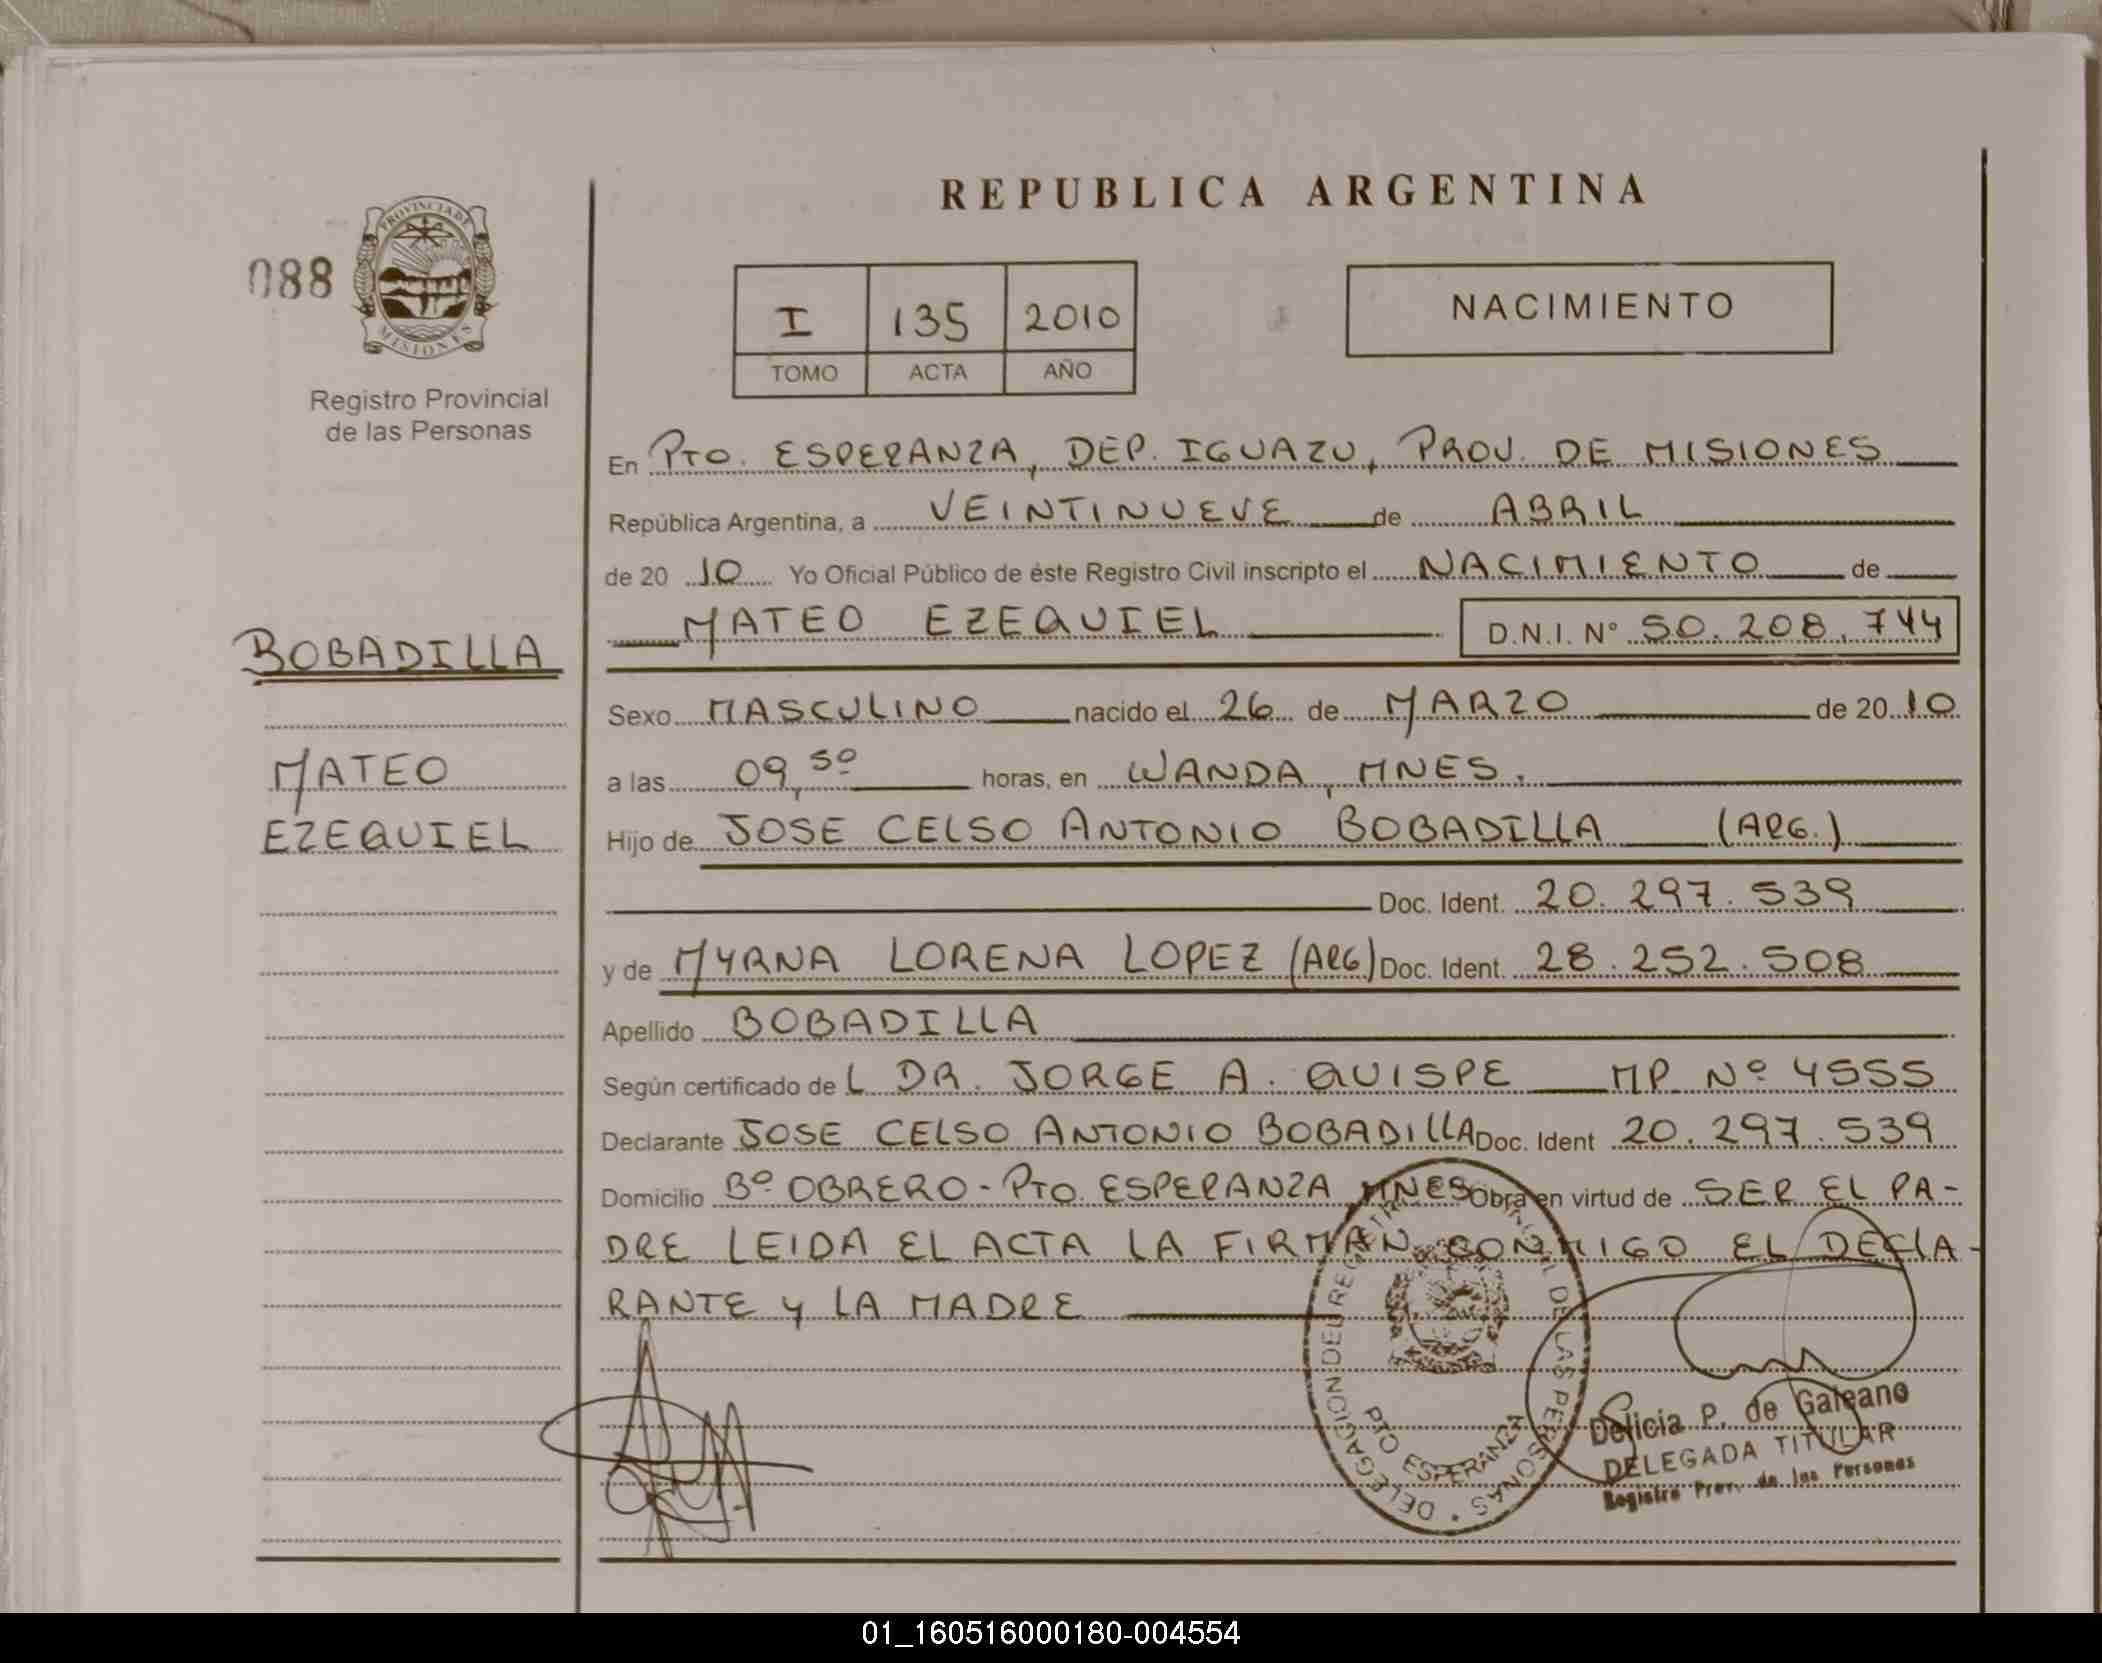 REPUBLICA ARGENTINA
088
PROVINCIA DE
MISIONES
Registro Provincial
de las Personas
I 135 2010
TOMO ACTA AÑO
NACIMIENTO
En PTO. ESPERANZA, DEP. IGUAZU, PROV. DE MISIONES
República Argentina, a VEINTINUEVE de ABRIL
de 20 10 Yo Oficial Público de éste Registro Civil inscripto el NACIMIENTO de
MATEO EZEQUIEL D.N.I. Nº 50.208.744
BOBADILLA
MATEO
EZEQUIEL
Sexo MASCULINO nacido el 26 de MARZO de 20 10
a las 09,50 horas, en WANDA, MNES.
Hijo de JOSE CELSO ANTONIO BOBADILLA (ARG.)
Doc. Ident. 20.297.539
y de MYRNA LORENA LOPEZ (ARG) Doc. Ident. 28.252.508
Apellido BOBADILLA
Según certificado de L DR. JORGE A. QUISPE MP Nº 4555
Declarante JOSE CELSO ANTONIO BOBADILLA Doc. Ident 20.297.539
Domicilio Bº OBRERO - PTO. ESPERANZA MNES Obra en virtud de SER EL PA-
DRE LEIDA EL ACTA LA FIRMAN CONMIGO EL DECLA-
RANTE Y LA MADRE
DELEGACION DEL REGISTRO PROVINCIAL DE LAS PERSONAS
PTO ESPERANZA
Delicia P. de Galeano
DELEGADA TITULAR
Registro Prov. de las Personas
01_160516000180-004554